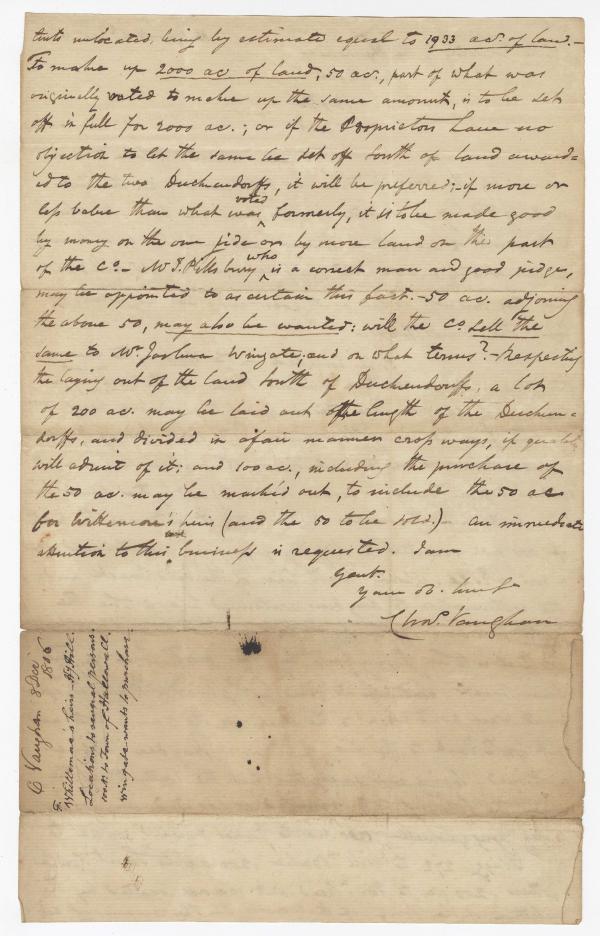 unlocated, being by estimate equal to 1933 acs. of land.-
To make up 2000 ac of land, 50 ac, part of what was
originally voted to make up the same amount, is to be set
off in full for 2000 ac.; or if the Proprietors have no
objection to let the same be set off South of land award=
ed to the two Duchendorffs, it will be preferred;-if more or
less value than what was voted formerly, it is to be made good
by money on the one side or by more land on the part
of the Co- Mr J. Pillsbury who is a correct man and good judge,
may be appointed to ascertain this fact.-50 ac. adjoining
the above 50, may also be wanted: will the Co. sell the
same to Mr. Joshua Wingate, and on what terms?-Respecting
the laying out of the land South of Duchendorffs, a lot
of 200 ac. may be laid out the length of the Duchen-
dorffs, and divided in a fair manner cross ways, if
will admit of it; and 100 ac., including the purchase of
the 50 ac. may be mark'd out, to include the 50 ac
for Wittemore's heirs (and the 50 to be sold.) an immediate
attention to this business is requested. I am
Gent.
Your ob. Serv
Chas. Vaughan
C Vaughan 8 Dec
1806
Whittemore's heirs
Locations to several persons.
to Town of Hallowell.
Wingate wants to purchase.